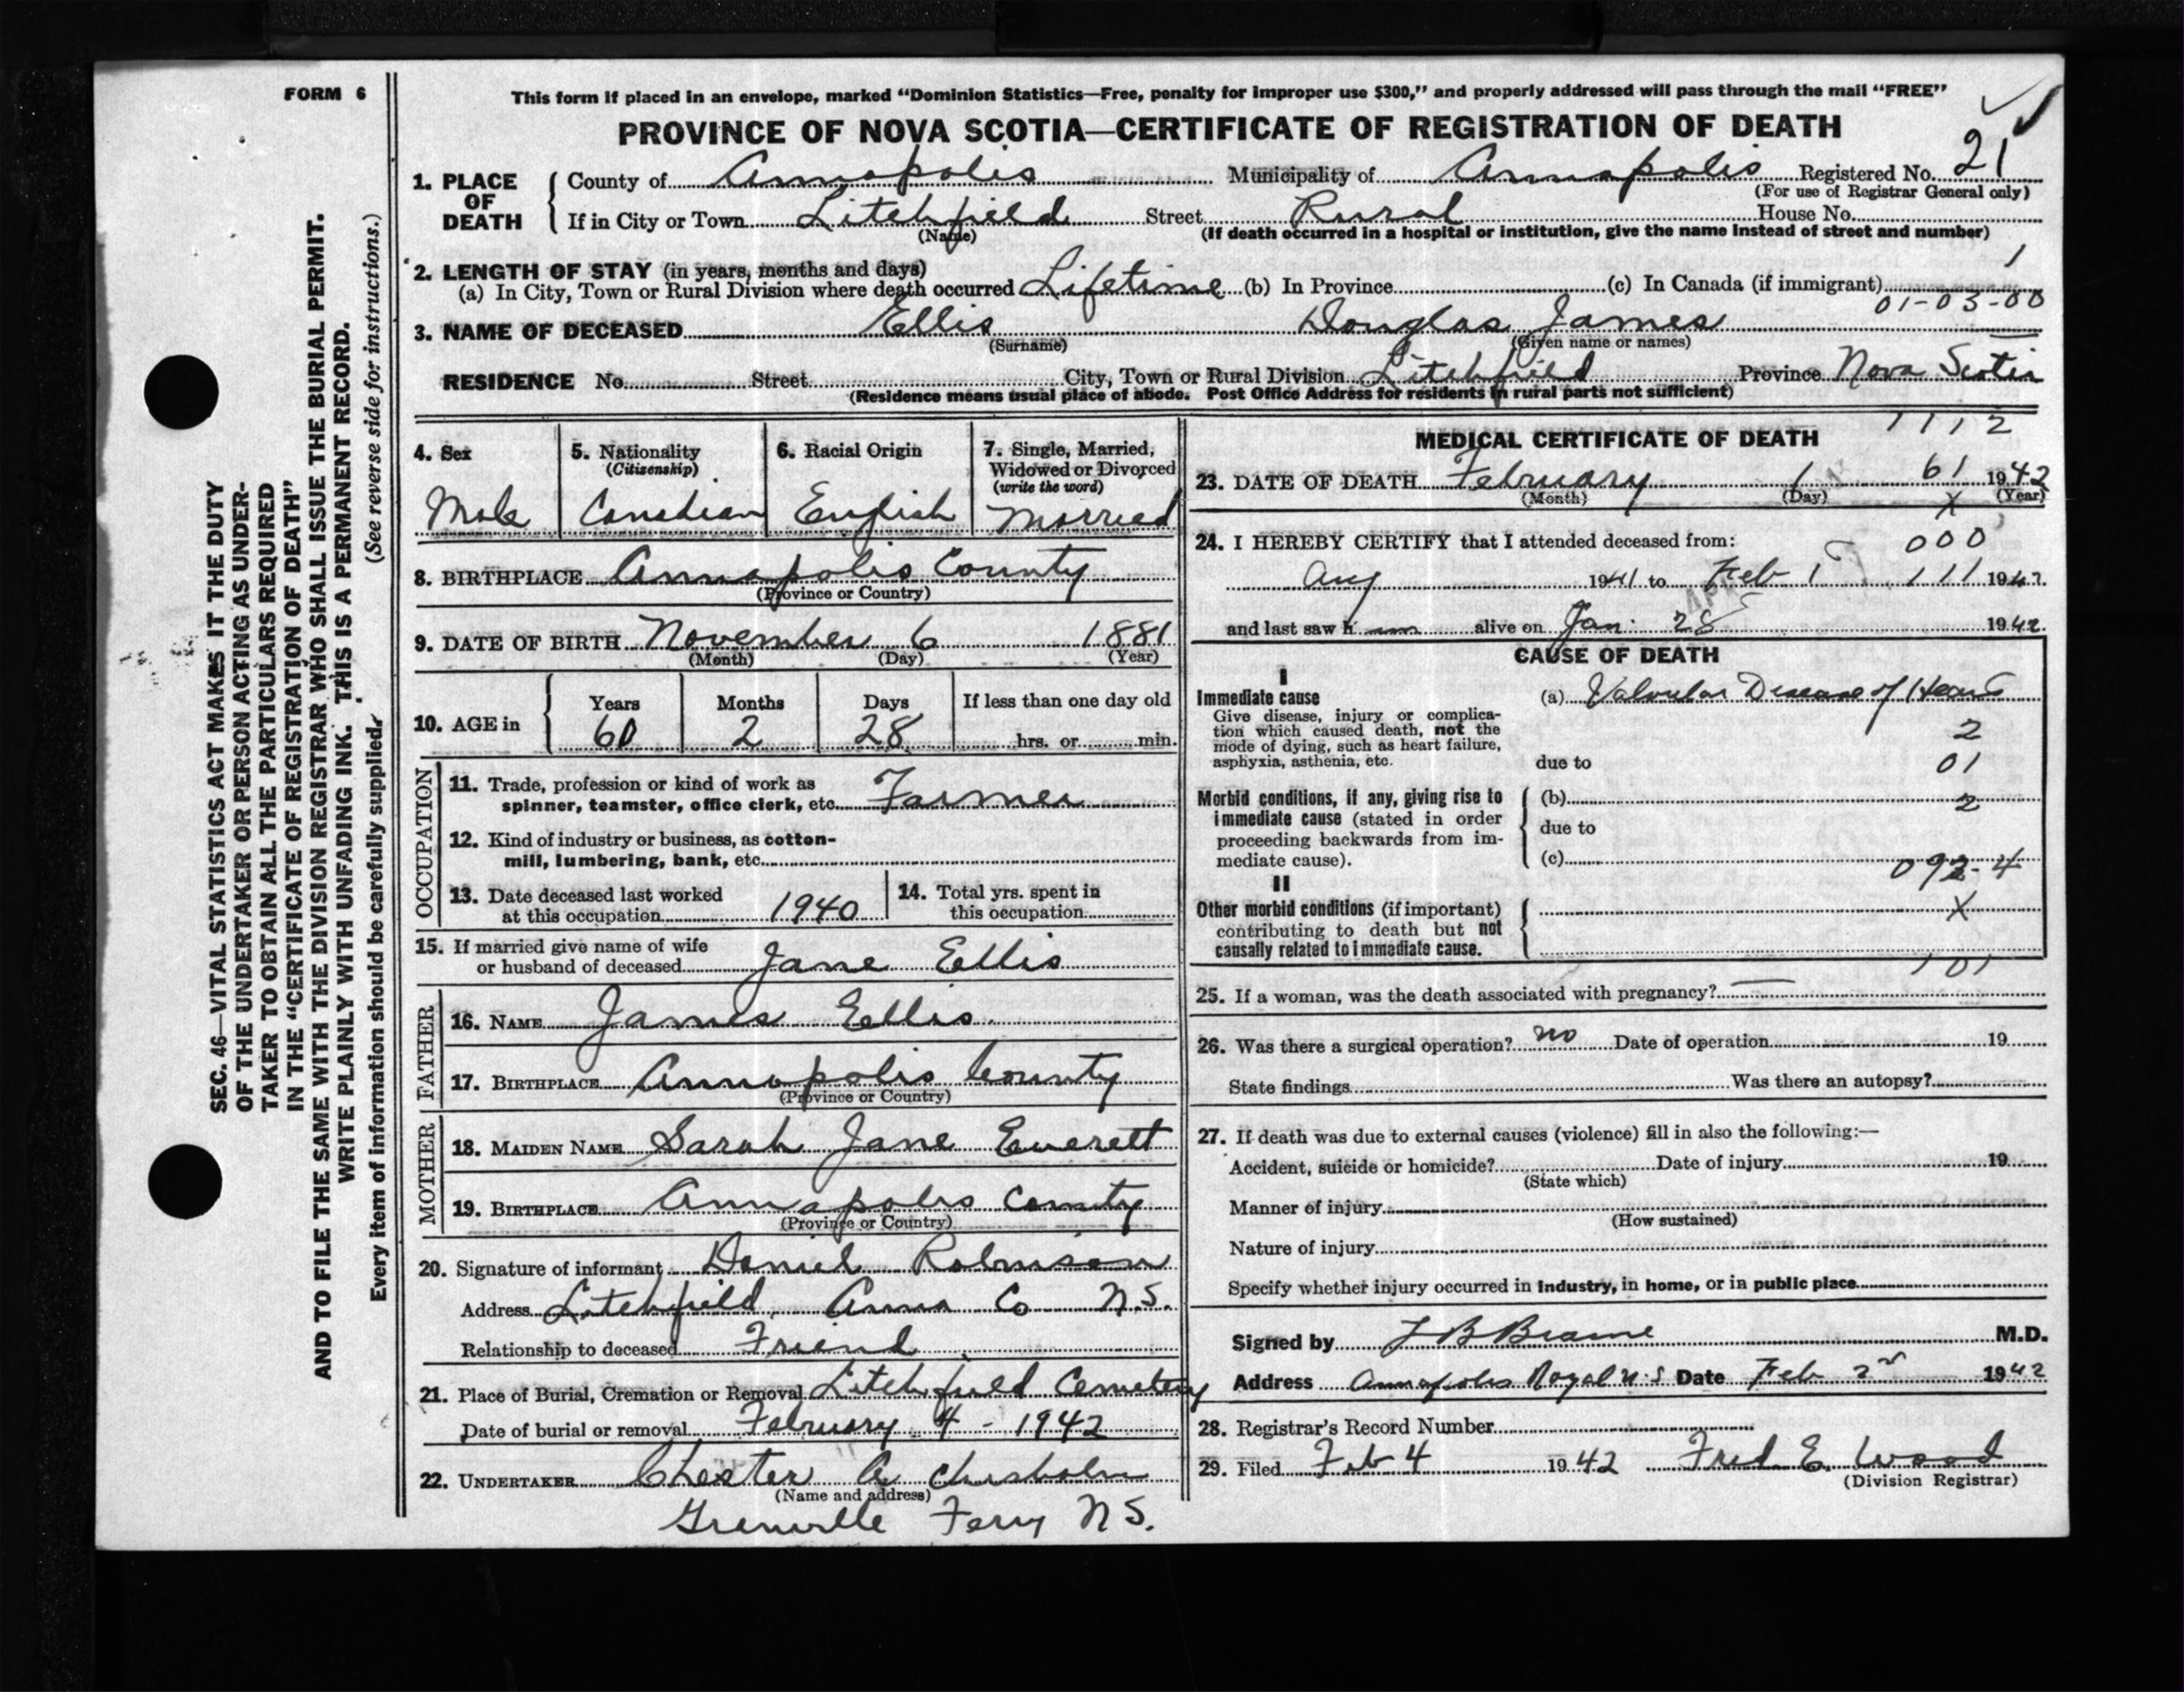 FORM 6
This form if placed in an envelope, marked “Dominion Statistics—Free, penalty for improper use $300,” and properly addressed will pass through the mail “FREE”
PROVINCE OF NOVA SCOTIA—CERTIFICATE OF REGISTRATION OF DEATH
1. PLACE OF DEATH
County of Annapolis Municipality of Annapolis Registered No. 21
(For use of Registrar General only)
If in City or Town Litchfield Street Rural House No.
(Name) (If death occurred in a hospital or institution, give the name instead of street and number)
2. LENGTH OF STAY (in years, months and days) 1
(a) In City, Town or Rural Division where death occurred Lifetime (b) In Province (c) In Canada (if immigrant)
01-03-00
3. NAME OF DECEASED Ellis Douglas James
(Surname) (Given name or names)
RESIDENCE No. Street City, Town or Rural Division Litchfield Province Nova Scotia
(Residence means usual place of abode. Post Office Address for residents in rural parts not sufficient)
4. Sex
Male
5. Nationality
(Citizenship)
Canadian
6. Racial Origin
English
7. Single, Married,
Widowed or Divorced
(write the word)
Married
8. BIRTHPLACE Annapolis County
(Province or Country)
9. DATE OF BIRTH November 6 1881
(Month) (Day) (Year)
10. AGE in
Years Months Days If less than one day old
60 2 28 hrs. or min.
OCCUPATION
11. Trade, profession or kind of work as
spinner, teamster, office clerk, etc. Farmer
12. Kind of industry or business, as cotton-
mill, lumbering, bank, etc.
13. Date deceased last worked
at this occupation 1940
14. Total yrs. spent in
this occupation
15. If married give name of wife
or husband of deceased Jane Ellis
FATHER
16. NAME James Ellis
17. BIRTHPLACE Annapolis County
(Province or Country)
MOTHER
18. MAIDEN NAME Sarah Jane Everett
19. BIRTHPLACE Annapolis County
(Province or Country)
20. Signature of informant Daniel Robinson
Address Litchfield Anna Co N.S.
Relationship to deceased Friend
21. Place of Burial, Cremation or Removal Litchfield Cemetery
Date of burial or removal February 4 - 1942
22. UNDERTAKER Chester A Chisholm
(Name and address)
Granville Ferry N S.
1112
MEDICAL CERTIFICATE OF DEATH
23. DATE OF DEATH February 1 61 1942
(Month) (Day) X (Year)
24. I HEREBY CERTIFY that I attended deceased from: 000
Aug 1941 to Feb 1 111 1942
and last saw him alive on Jan. 28 1942
CAUSE OF DEATH
I
Immediate cause
Give disease, injury or complica-
tion which caused death, not the
mode of dying, such as heart failure,
asphyxia, asthenia, etc.
(a) Valvular Disease of Heart
2
due to 01
Morbid conditions, if any, giving rise to
immediate cause (stated in order
proceeding backwards from im-
mediate cause).
(b) 2
due to
(c) 092-4
II
Other morbid conditions (if important)
contributing to death but not
causally related to immediate cause.
X
101
25. If a woman, was the death associated with pregnancy? —
26. Was there a surgical operation? no Date of operation 19
State findings Was there an autopsy?
27. If death was due to external causes (violence) fill in also the following:—
Accident, suicide or homicide? Date of injury 19
(State which)
Manner of injury
(How sustained)
Nature of injury
Specify whether injury occurred in industry, in home, or in public place
Signed by M.D.
Address Annapolis Royal N.S Date Feb 2nd 1942
28. Registrar's Record Number
29. Filed Feb 4 1942 Fred E. Wood
(Division Registrar)
SEC. 46—VITAL STATISTICS ACT MAKES IT THE DUTY
OF THE UNDERTAKER OR PERSON ACTING AS UNDER-
TAKER TO OBTAIN ALL THE PARTICULARS REQUIRED
IN THE “CERTIFICATE OF REGISTRATION OF DEATH”
AND TO FILE THE SAME WITH THE DIVISION REGISTRAR WHO SHALL ISSUE THE BURIAL PERMIT.
WRITE PLAINLY WITH UNFADING INK. THIS IS A PERMANENT RECORD.
Every item of information should be carefully supplied. (See reverse side for instructions.)